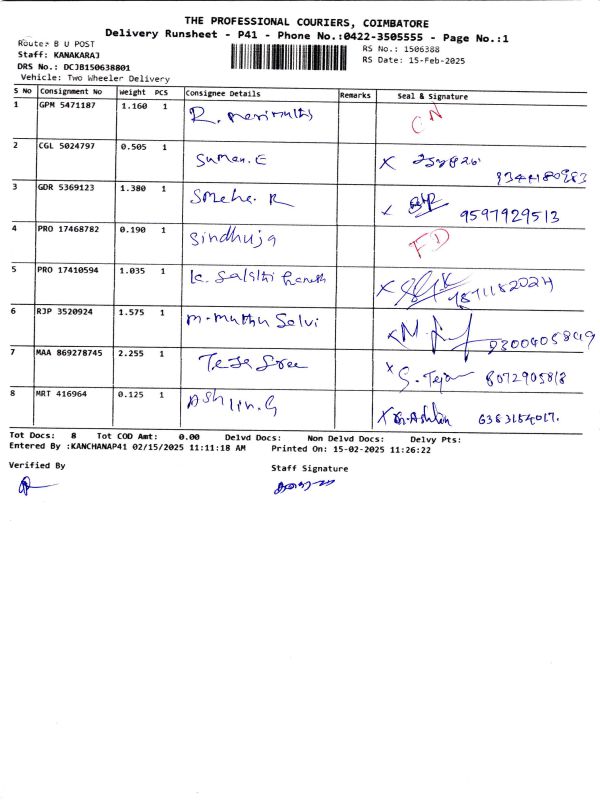 THE PROFESSIONAL COURIERS, COIMBATORE
Delivery Runsheet - P41 - Phone No.:0422-3505555 - Page No.:1
Route: B U POST
RS No.: 1506388
Staff: KANAKARAJ
RS Date: 15-Feb-2025
DRS No.: DCJB150638801
Vehicle: Two Wheeler Delivery
S No Consignment No Weight PCS Consignee Details Remarks Seal & Signature
1 GPM 5471187 1.160 1 CN
2 CGL 5024797 0.505 1 Suman. E X
3 GDR 5369123 1.380 1 Sneha. R 9597929513
4 PRO 17468782 0.190 1 Sindhuja FD
5 PRO 17410594 1.035 1 X
6 RJP 3520924 1.575 1 M. Muthu Selvi X
7 MAA 869278745 2.255 1 Teja Sree X S. Teja
8 MRT 416964 0.125 1 Ashlin. G X 6383154017.
Tot Docs: 8 Tot COD Amt: 0.00 Delvd Docs: Non Delvd Docs: Delvy Pts:
Entered By :KANCHANAP41 02/15/2025 11:11:18 AM Printed On: 15-02-2025 11:26:22
Verified By Staff Signature